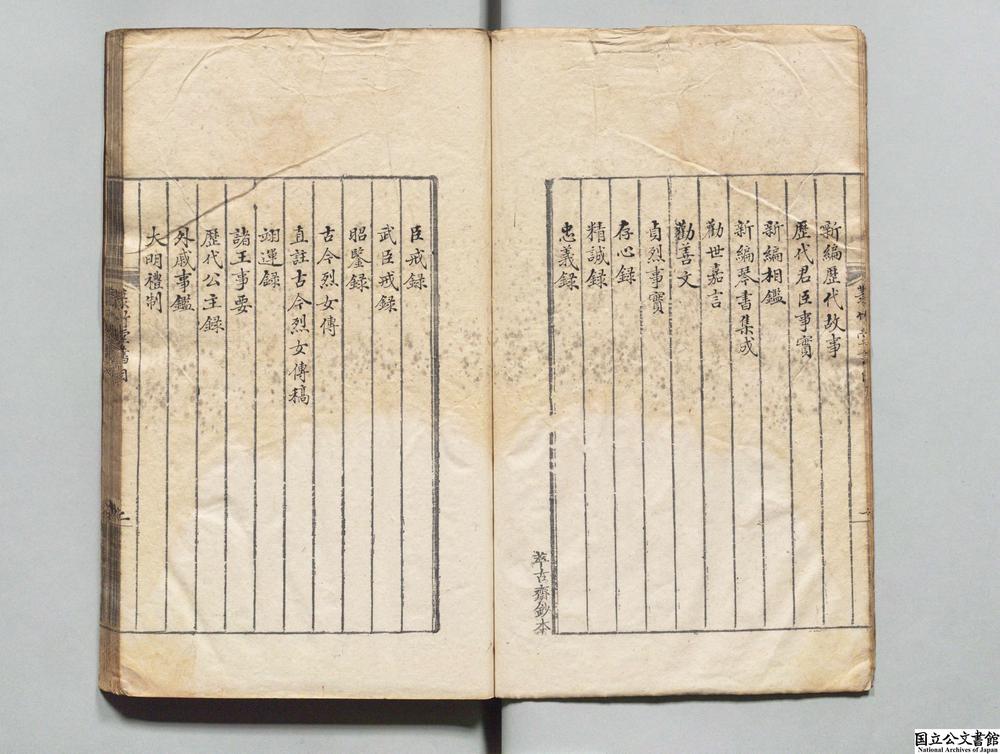 新編歷代故事
歷代君臣事實
新編相鑑
新編琴書集成
勸世嘉言
勸善文
貞烈事實
存心録
精誠録
忠義録
萃古齋鈔本
臣戒録
武臣戒録
昭鑒録
古今烈女傳
直註古今烈女傳稿
翊運録
諸王事要
歷代公主録
外戚事鑑
大明禮制
国立公文書館
National Archives of Japan